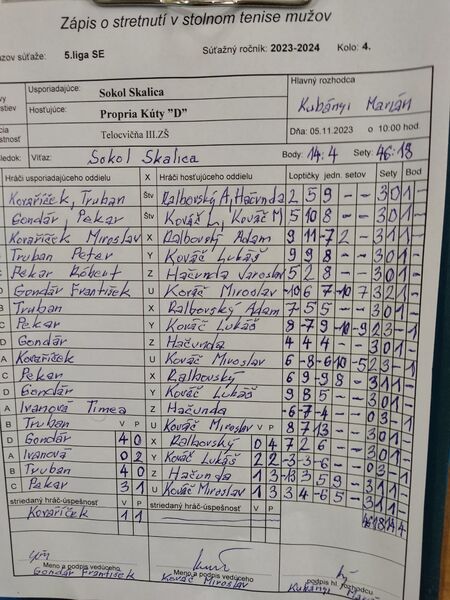 Zápis o stretnutí v stolnom tenise mužov
zov súťaže: 5.liga SE Súťažný ročník: 2023-2024 Kolo: 4.
Usporiadajúce: Sokol Skalica Hlavný rozhodca
Hosťujúce: Propria Kúty "D" Kubányi Marián
Telocvičňa III.ZŠ Dňa: 05.11.2023 o 10:00 hod.
ledok: Víťaz: Sokol Skalica Body: 14:4 Sety: 46:18
Hráči usporiadajúceho oddielu X Hráči hosťujúceho oddielu Loptičky jedn. setov Sety Bod
Kovaříček, Truban Štv Ralbovský A, Hačunda 2 5 9 - - 3 0 1 -
Gondár, Pekar Štv Kováč L, Kováč M 5 10 8 - - 3 0 1 -
Kovaříček Miroslav X Ralbovský Adam 9 11 -7 2 - 3 1 1 -
Truban Peter Y Kováč Lukáš 9 9 8 - - 3 0 1 -
Pekar Róbert Z Hačunda Jaroslav 5 2 8 - - 3 0 1 -
D Gondár František U Kováč Miroslav -10 6 7 -10 7 3 2 1 -
B Truban X Ralbovský Adam 7 5 5 - - 3 0 1 -
C Pekar Y Kováč Lukáš 8 -7 9 -10 -9 2 3 - 1
D Gondár Z Hačunda 4 4 4 - - 3 0 1 -
A Kovaříček U Kováč Miroslav 6 -8 -6 10 -5 2 3 - 1
C Pekar X Ralbovský 6 9 -9 8 - 3 1 1 -
D Gondár Y Kováč Lukáš 9 8 5 - - 3 0 1 -
A Ivanová Timea Z Hačunda -6 -7 -4 - - 0 3 - 1
B Truban V P U Kováč Miroslav V P 8 7 13 - - 3 0 1 -
D Gondár 4 0 X Ralbovský 0 4 7 2 6 - - 3 0 1 -
A Ivanová 0 2 Y Kováč Lukáš 2 2 -3 -3 -6 - - 0 3 - 1
B Truban 4 0 Z Hačunda 1 3 -13 5 9 - 3 1 1 -
C Pekar 3 1 U Kováč Miroslav 1 3 3 4 -6 5 - 3 1 1 -
striedaný hráč-úspešnosť V P striedaný hráč-úspešnosť V P 46 18 14 4
Kovaříček 1 1
Meno a podpis vedúceho Meno a podpis vedúceho podpis hl. rozhodcu
Gondár František Kováč Miroslav Kubányi